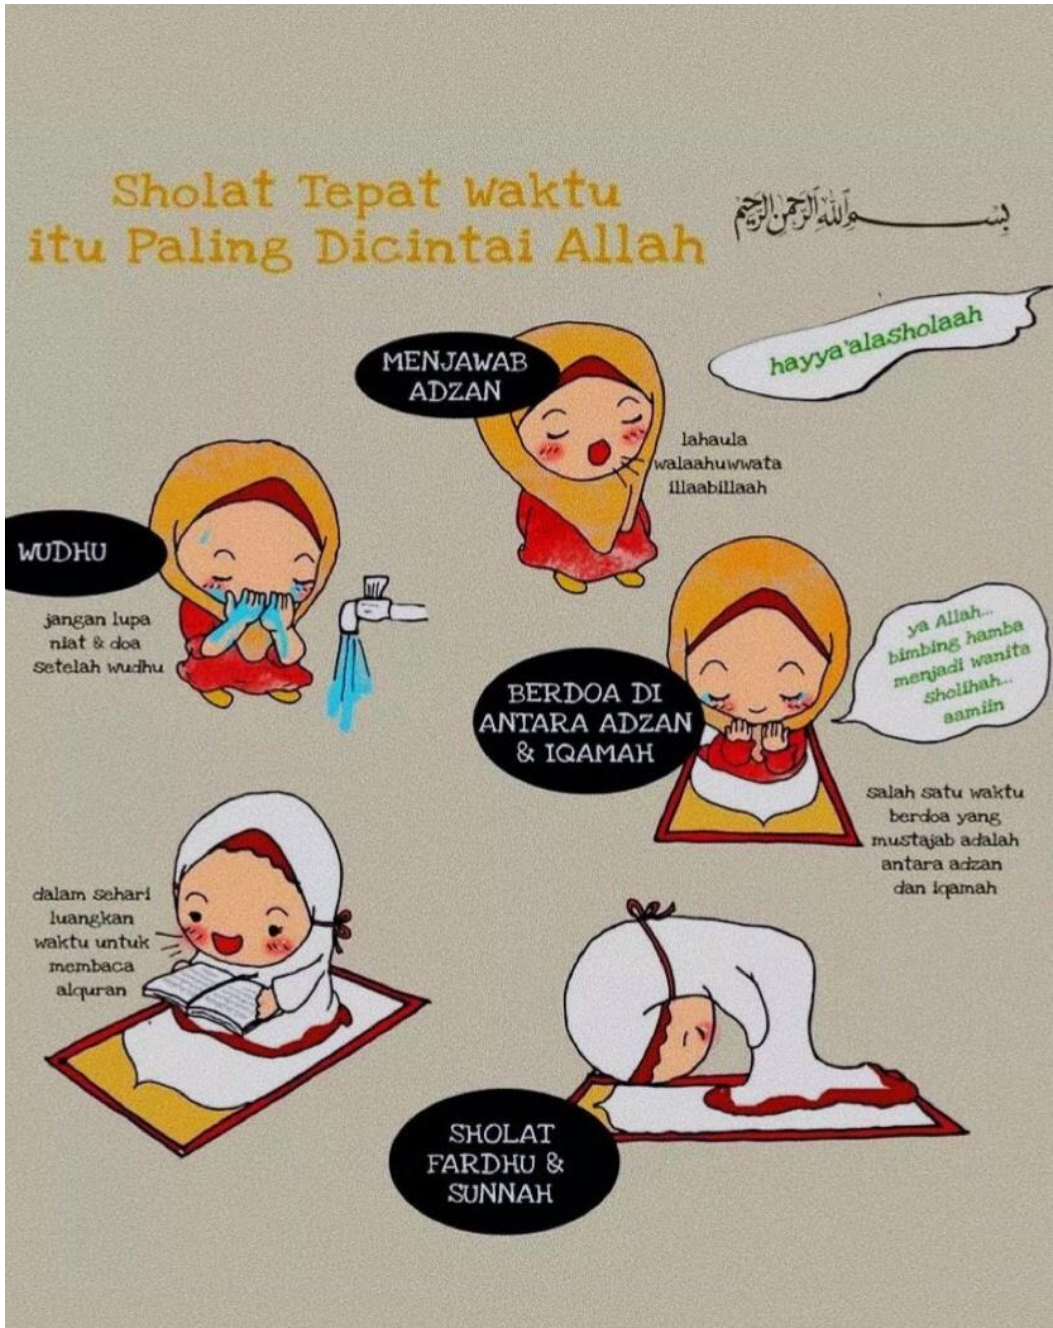 Sholat Tepat waktu
itu Paling Dicintai Allah
بسم الله الرحمن الرحيم
MENJAWAB
ADZAN
hayya'alasholaah
lahaula
walaahuwwata
illaabillaah
WUDHU
jangan lupa
niat & doa
setelah wudhu
BERDOA DI
ANTARA ADZAN
& IQAMAH
ya Allah...
bimbing hamba
menjadi wanita
sholihah...
aamiin
salah satu waktu
berdoa yang
mustajab adalah
antara adzan
dan iqamah
dalam sehari
luangkan
waktu untuk
membaca
alquran
SHOLAT
FARDHU &
SUNNAH